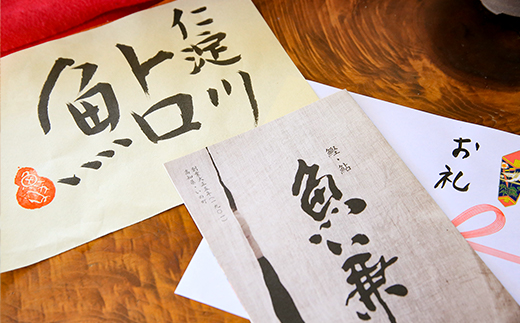 仁淀川
鮎
鰹・鮎
魚兼
お礼